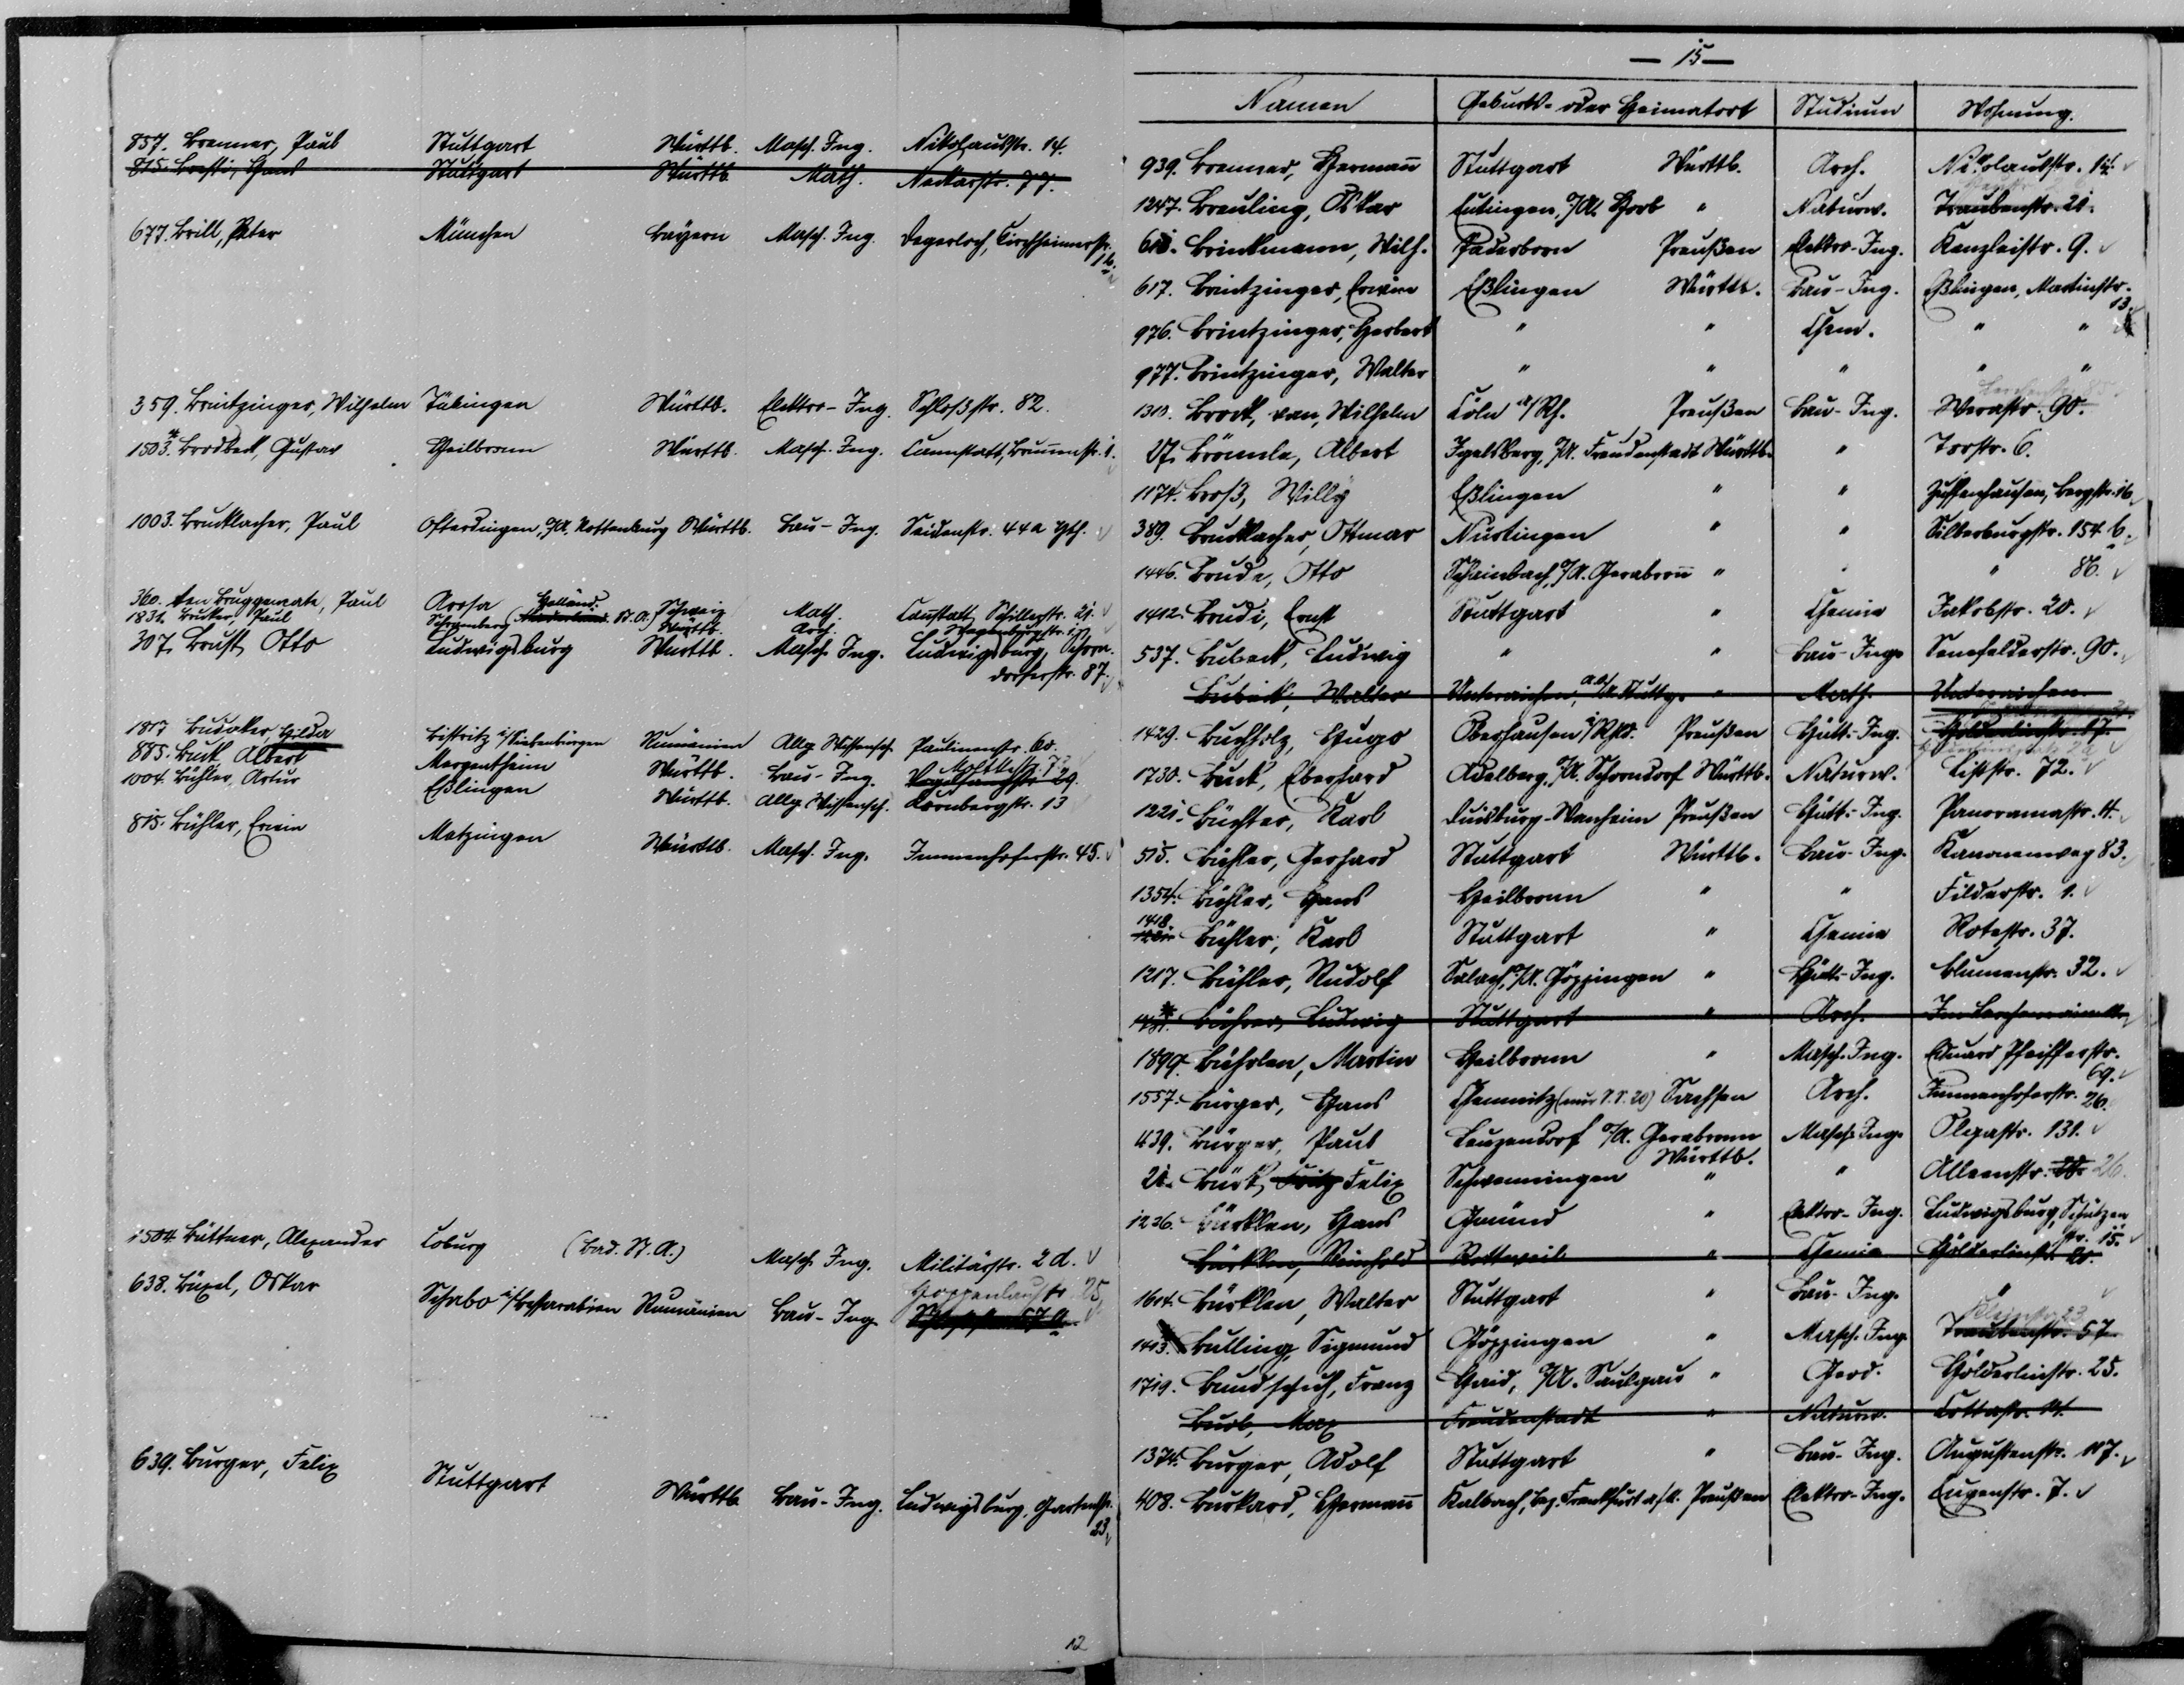 857. Bremer, Paul Stuttgart Württb. Masch. Ing. Nikolausstr. 14.
815. Stuttgart Württb. Math. Neckarstr. 77.
677. Brill, Peter München Bayern Masch. Ing. Degerloch, Kirchheimerstr. 16.
359. Brintzinger, Wilhelm Tübingen Württb. Elektro-Ing. Schloßstr. 82.
1503.* Brodbeck, Gustav Heilbronn Württb. Masch. Ing. Cannstatt, Brunnenstr. 1.
1003. Brucklacher, Paul Ofterdingen, O/A. Rottenburg Württb. Bau-Ing. Seidenstr. 44a Hth.
360. ten Bruggencate, Paul Arosa Holländ. Schweiz Math. Canstatt, Schillerstr. 21.
1831. Bruker, Paul Schramberg (St. A.) Württb. Arch. Wagenburgstr.
307. Brust, Otto Ludwigsburg Württb. Masch. Ing. Ludwigsburg, Schorndorferstr. 87.
1817 Budaker, Hilda Bistritz i/Siebenbürgen Rumänien Allg. Wissensch. Paulinenstr. 60.
885. Buck, Albert Mergentheim Württb. Bau-Ing. Moltkestr. 73
1004. Bühler, Artur Eßlingen Württb. Allg. Wissensch. Kornbergstr. 13
815. Bühler, Erwin Metzingen Württb. Masch. Ing. Immenhoferstr. 45.
1504. Büttner, Alexander Coburg (Bad. St. A.) Masch. Ing. Militärstr. 2 d.
638. Büxel, Oskar Schabo i/Bessarabien Rumänien Bau-Ing. Hoppenlaustr. 25
639. Burger, Felix Stuttgart Württb. Bau-Ing. Ludwigsburg, Gartenstr. 23
12
— 15 —
Namen Geburts- oder Heimatort Studium Wohnung.
939. Bremer, Hermann Stuttgart Württb. Arch. Nikolausstr. 14.
1247. Breuling, Oskar Eutingen, O/A. Horb " Naturw. Traubenstr. 21.
618. Brinkmann, Wilh. Paderborn Preußen Elektro-Ing. Kanzleistr. 9.
617. Brintzinger, Erwin Eßlingen Württb. Bau-Ing. Eßlingen, Martinstr. 13.
976. Brintzinger, Herbert " " Chem. " "
977. Brintzinger, Walter " " " " "
1310. Brock, van, Wilhelm Cöln a/Rh. Preußen Bau-Ing. Werastr. 90.
27. Brömle, Albert Igelsberg, O/A. Freudenstadt Württb. " Torstr. 6.
1174. Broß, Willy Eßlingen " " Zuffenhausen, Bergstr. 16
389. Brucklacher, Ottmar Nürtingen " " Silberburgstr. 154 b.
1446. Brude, Otto Schainbach, O/A. Gerabronn " " " 86.
1412. Brudi, Ernst Stuttgart " Chemie Jakobstr. 20.
537. Bubeck, Ludwig " " Bau-Ing. Senefelderstr. 90.
Bubeck, Walter Unteraichen, O/A. Stuttg. " Math. Unteraichen.
1429. Buchholz, Hugo Oberhausen i/Rhld. Preußen Hütt.-Ing. Hölderlinstr. 17.
1730. Buck, Eberhard Adelberg, O/A. Schorndorf Württb. Naturw. Liststr. 72.
1221. Büchter, Karl Duisburg-Wanheim Preußen Hütt.-Ing. Panoramastr. 4.
515. Bühler, Gerhard Stuttgart Württb. Bau-Ing. Kanonenweg 83.
1354. Bühler, Hans Heilbronn " " Filderstr. 1.
1418. Bühler, Karl Stuttgart " Chemie Rotestr. 37.
1217. Bühler, Rudolf Salach, O/A. Göppingen " Hütt.-Ing. Blumenstr. 32.
Bührer, Ludwig Stuttgart " Arch.
1899. Bührlen, Martin Heilbronn " Masch. Ing. Eduard Pfeifferstr. 69.
1557. Bürger, Hans Chemnitz (nur S.S. 20) Sachsen Arch. Immenhoferstr. 26.
439. Bürger, Paul Leuzendorf O/A. Gerabronn Württb. Masch. Ing. Olgastr. 131.
21. Bürk, Fritz Felix Schwenningen " " Alleenstr. 26.
1236. Bürklen, Hans Gmünd " Elektro-Ing. Ludwigsburg, Schützenstr. 15.
Bürklen, Reinhold Rottweil " Chemie Hölderlinstr. 20.
1604. Bürklen, Walter Stuttgart " Bau-Ing. "
1413. Bulling, Sigmund Göppingen " Masch. Ing. Traubenstr. 57
1719. Bundschuh, Franz Haid, O/A. Saulgau " Geod. Hölderlinstr. 25.
Burk, Max Freudenstadt " Naturw. Cottastr.
1374. Burger, Adolf Stuttgart " Bau-Ing. Augustenstr. 107.
408. Burkard, Hermann Kalbach, Bez. Frankfurt a/M. Preußen Elektro-Ing. Eugenstr. 7.